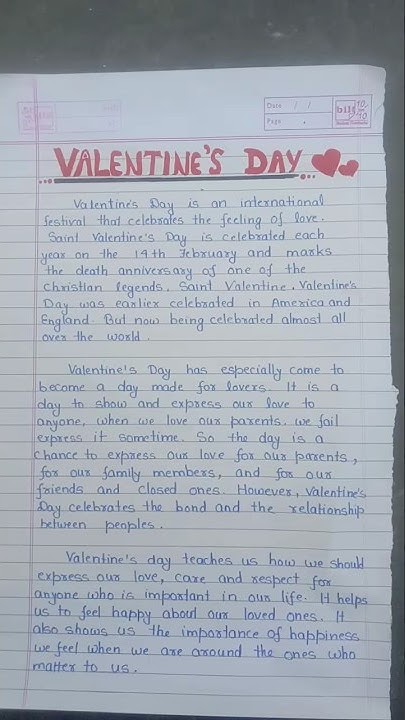 Date / /
Page .
VALENTINE'S DAY
Valentine's Day is an international
festival that celebrates the feeling of love.
Saint Valentine's Day is celebrated each
year on the 14th February and marks
the death anniversary of one of the
Christian legends, Saint Valentine. Valentine's
Day was earlier celebrated in America and
England. But now being celebrated almost all
over the world.
Valentine's Day has especially come to
become a day made for lovers. It is a
day to show and express our love to
anyone, when we love our parents. we fail
express it sometime. So the day is a
chance to express our love for our parents,
for our family members, and for our
friends and closed ones. However, Valentine's
Day celebrates the bond and the relationship
between peoples.
Valentine's day teaches us how we should
express our love, care and respect for
anyone who is important in our life. It helps
us to feel happy about our loved ones. It
also shows us the importance of happiness
we feel when we are around the ones who
matter to us.